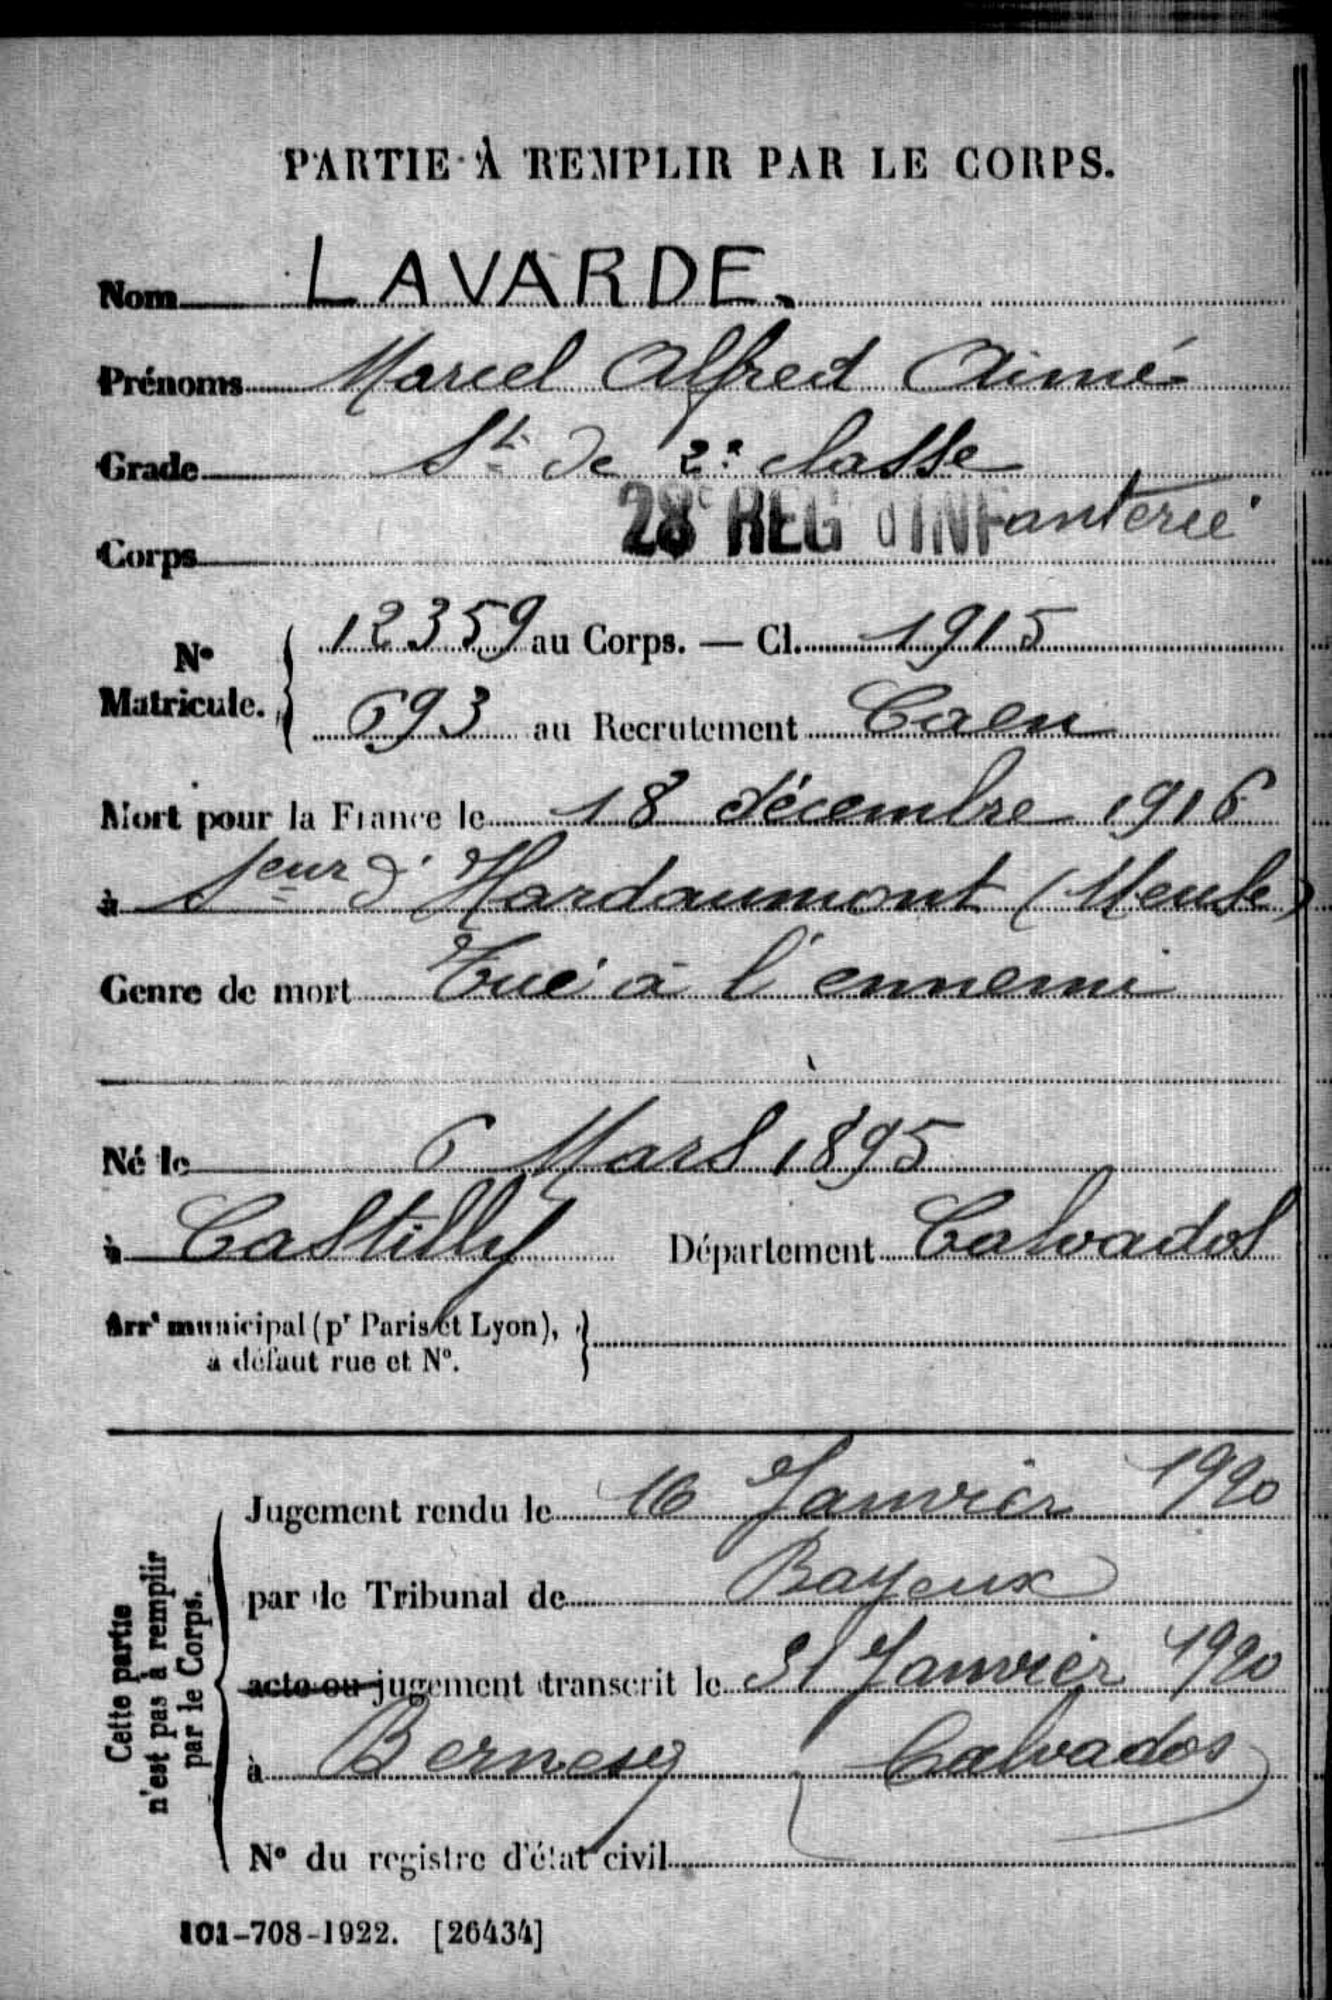 PARTIE À REMPLIR PAR LE CORPS.
Nom LAVARDE.
Prénoms Marcel Alfred Aimé
Grade St. de 2e classe
28e REG d'INFanterie
Corps
No Matricule. { 12359 au Corps. — Cl. 1915
693 au Recrutement Caen
Mort pour la France le 18 décembre 1916
à Seur d'Hardaumont (Meuse)
Genre de mort Tué à l'ennemi
Né le 6 Mars 1895
à Castilly Département Calvados
Arrt municipal (pr Paris et Lyon), }
à défaut rue et No.
Cette partie
n'est pas à remplir
par le Corps.
Jugement rendu le 16 Janvier 1920
par le Tribunal de Bayeux
acte ou jugement transcrit le 31 Janvier 1920
à Bernesq Calvados
No du registre d'état civil
101-708-1922. [26434]